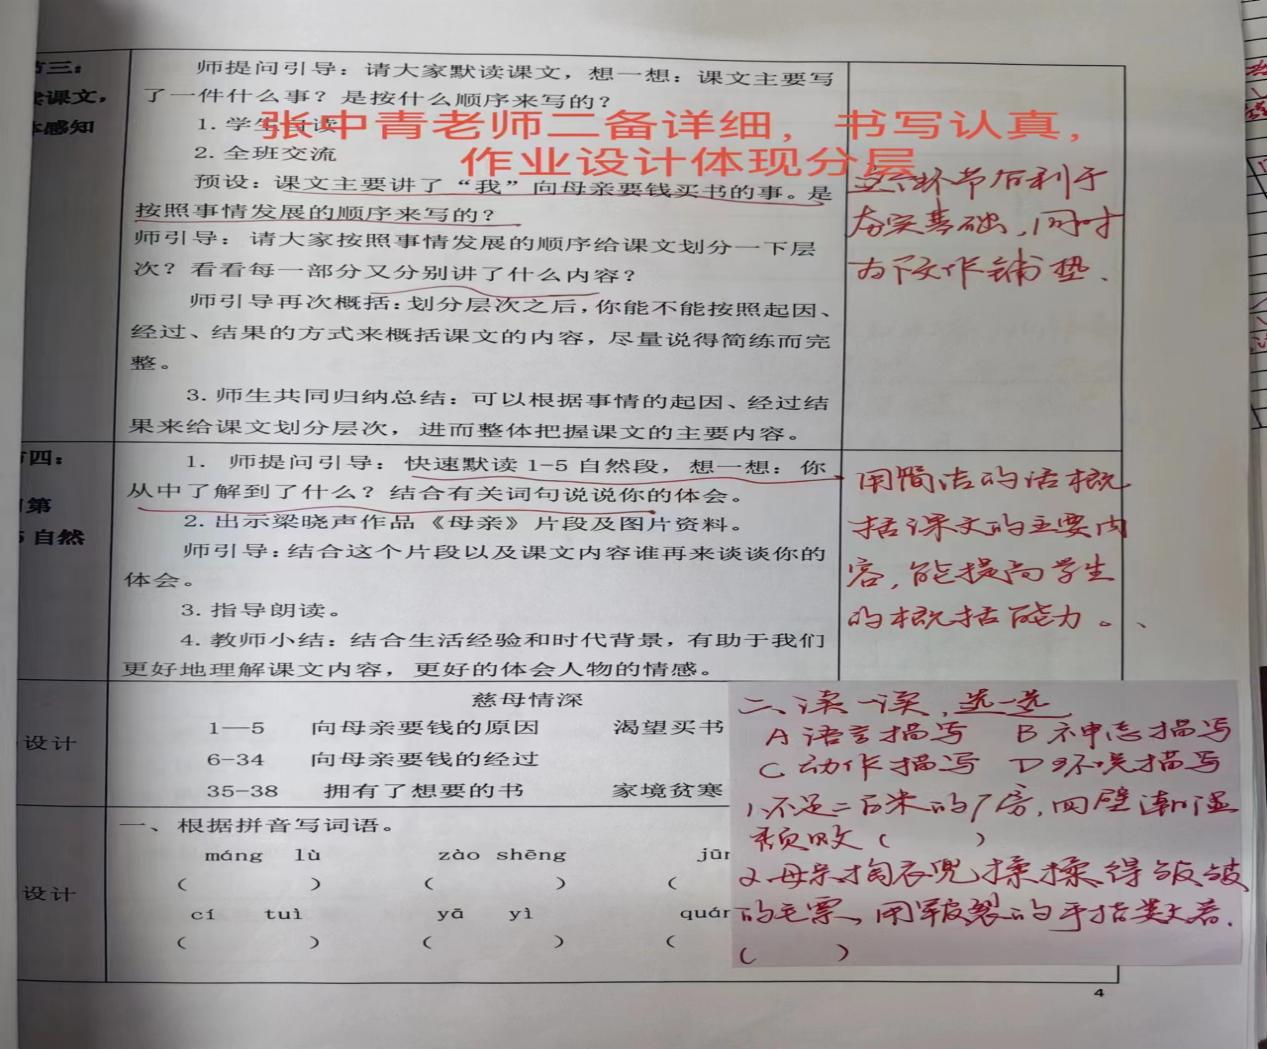 节三：
读课文，
体感知
师提问引导：请大家默读课文，想一想：课文主要写
了一件什么事？是按什么顺序来写的？
张中青老师二备详细，书写认真，
作业设计体现分层
1. 学生自读
2. 全班交流
预设：课文主要讲了“我”向母亲要钱买书的事。是
按照事情发展的顺序来写的？
师引导：请大家按照事情发展的顺序给课文划分一下层
次？看看每一部分又分别讲了什么内容？
师引导再次概括：划分层次之后，你能不能按照起因、
经过、结果的方式来概括课文的内容，尽量说得简练而完
整。
3. 师生共同归纳总结：可以根据事情的起因、经过结
果来给课文划分层次，进而整体把握课文的主要内容。
这个环节有利于
夯实基础，同时
为下文作铺垫.
节四：
第
5 自然
1. 师提问引导：快速默读 1-5 自然段，想一想：你
从中了解到了什么？结合有关词句说说你的体会。
2. 出示梁晓声作品《母亲》片段及图片资料。
师引导：结合这个片段以及课文内容谁再来谈谈你的
体会。
3. 指导朗读。
4. 教师小结：结合生活经验和时代背景，有助于我们
更好地理解课文内容，更好的体会人物的情感。
用简洁的话概
括课文的主要内
容，能提高学生
的概括能力。
设计
慈母情深
1—5 向母亲要钱的原因 渴望买书
6-34 向母亲要钱的经过
35-38 拥有了想要的书 家境贫寒
设计
一、根据拼音写词语。
máng lù zào shēng jūn
（ ） （ ） （
cí tuì yā yì quán
（ ） （ ） （
二、读一读，选一选
A 语言描写 B 神态描写
C 动作描写 D 环境描写
1、不足二百米的厂房，四壁潮湿
颓败（ ）
2、母亲掏衣兜 揉揉得皱皱
的毛票，用皲裂的手指数着.
（ ）
4